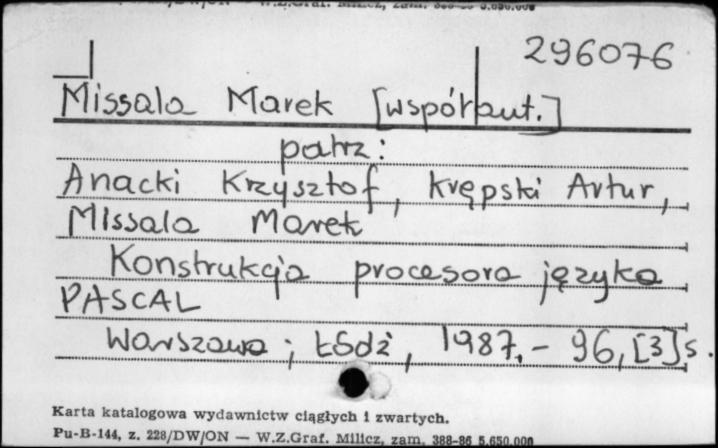 /DW/ON — W.Z.Graf. Milicz, zam. 388-86 5.650.000
296076
Missala Marek [współaut.]
patrz:
Anacki Krzysztof, Krępski Artur,
Missala Marek
Konstrukcja procesora języka
PASCAL
Warszawa ; Łódź, 1987.- 96, [3] s.
Karta katalogowa wydawnictw ciągłych i zwartych.
Pu-B-144, z. 228/DW/ON — W.Z.Graf. Milicz, zam. 388-86 5.650.000